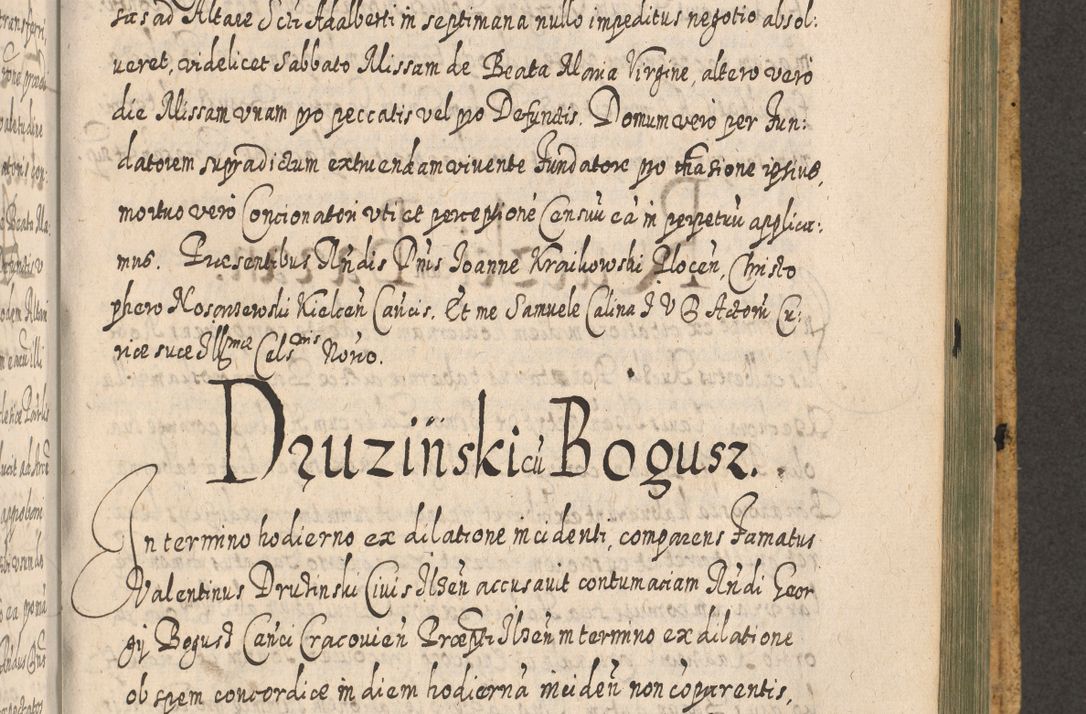 sas ad Altare Scti Adalberti in septimana nullo impeditus negotio absol:
ueret, videlicet Sabbato Missam de Beata Maria Virgine, altero vero
die Missam vnam pro peccatis vel pro Defunctis. Domum vero per Fun:
datorem supradictum extruendam vivente Fundatore pro mansione ipsius,
mortuo vero Concionatori vti et perceptioné Censuũ eà in perpetuũ applica:
mus. Praesentibus Rndis Dnis Joanne Kraikowski Plocen, Christo
phero Nosorzewski Kielcen Cancis. Et me Samuele Calina J V D Actorũ Cu:
riae suae Illmae Celsnis Norio.
Druziński cũ Bogusz.
In termino hodierno ex dilatione incidenti, comparens Famatus
Valentinus Druzinski Ciuis Ilzen accusauit contumaciam Rndi Geor
gij Bogusz Canci Cracouien Praepti Ilzen in termino ex dilatione
ob spem concordiae in diem hodiernã incideñ non cõparentis,